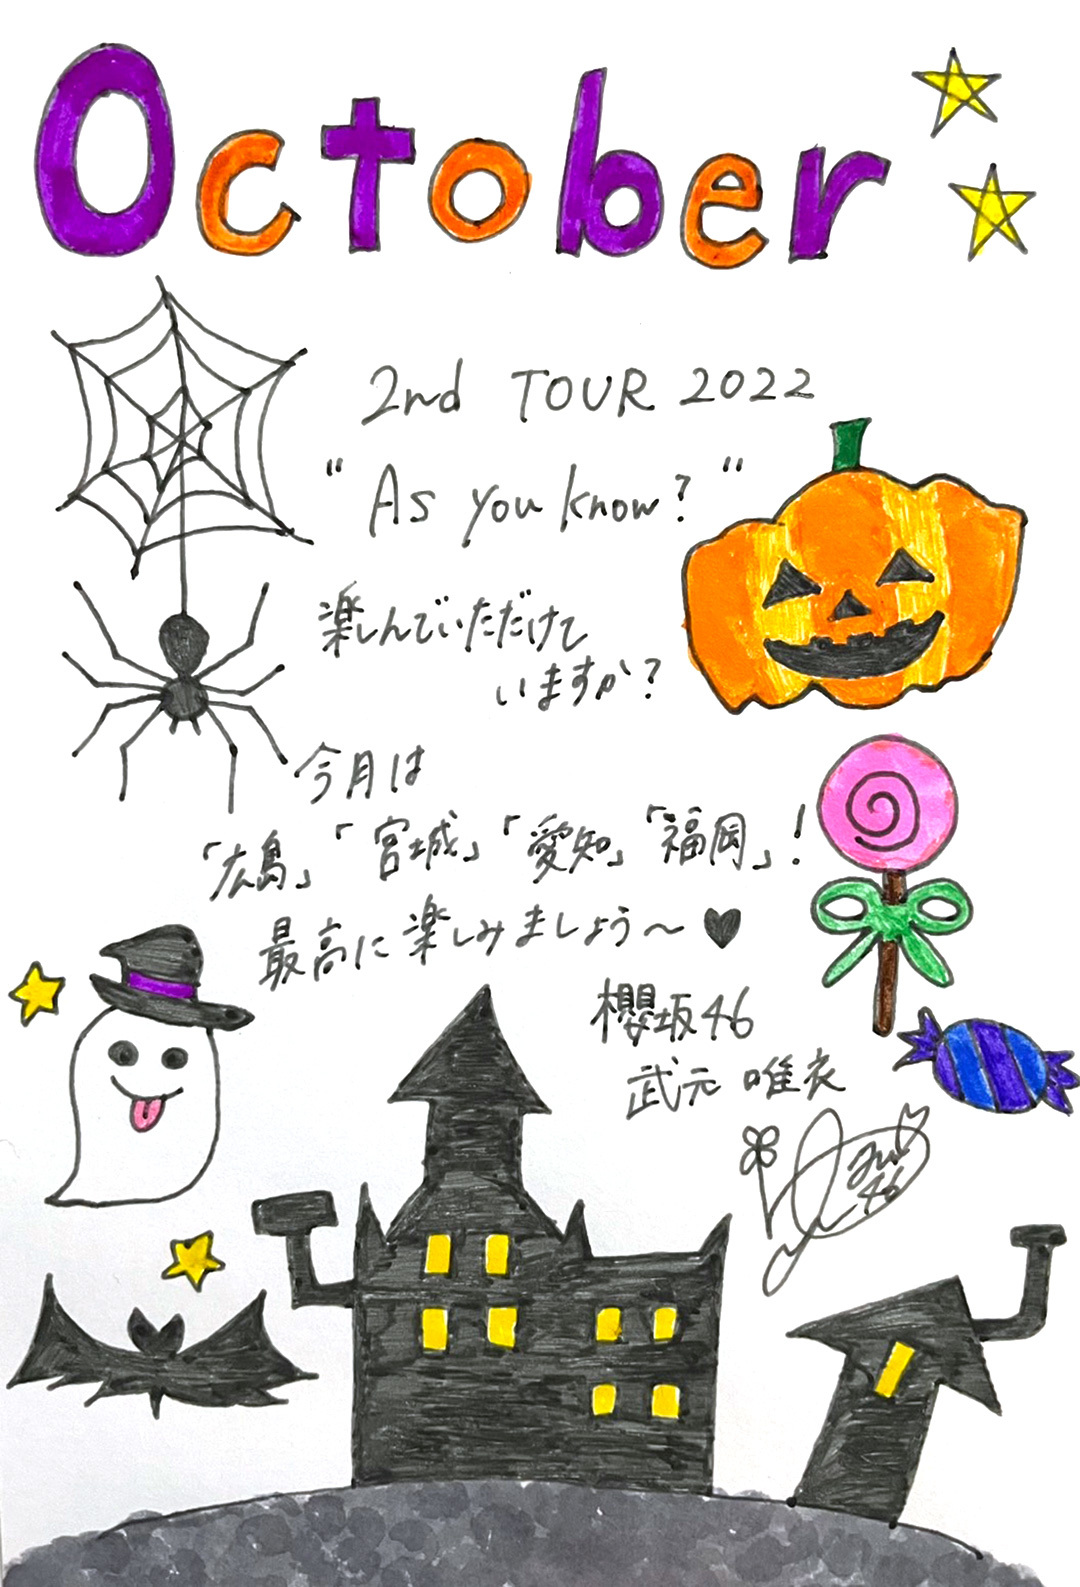 October
2nd TOUR 2022
"As you know?"
楽しんでいただけて
いますか?
今月は
「広島」「宮城」「愛知」「福岡」!
最高に楽しみましょう〜♥
櫻坂46
武元 唯衣